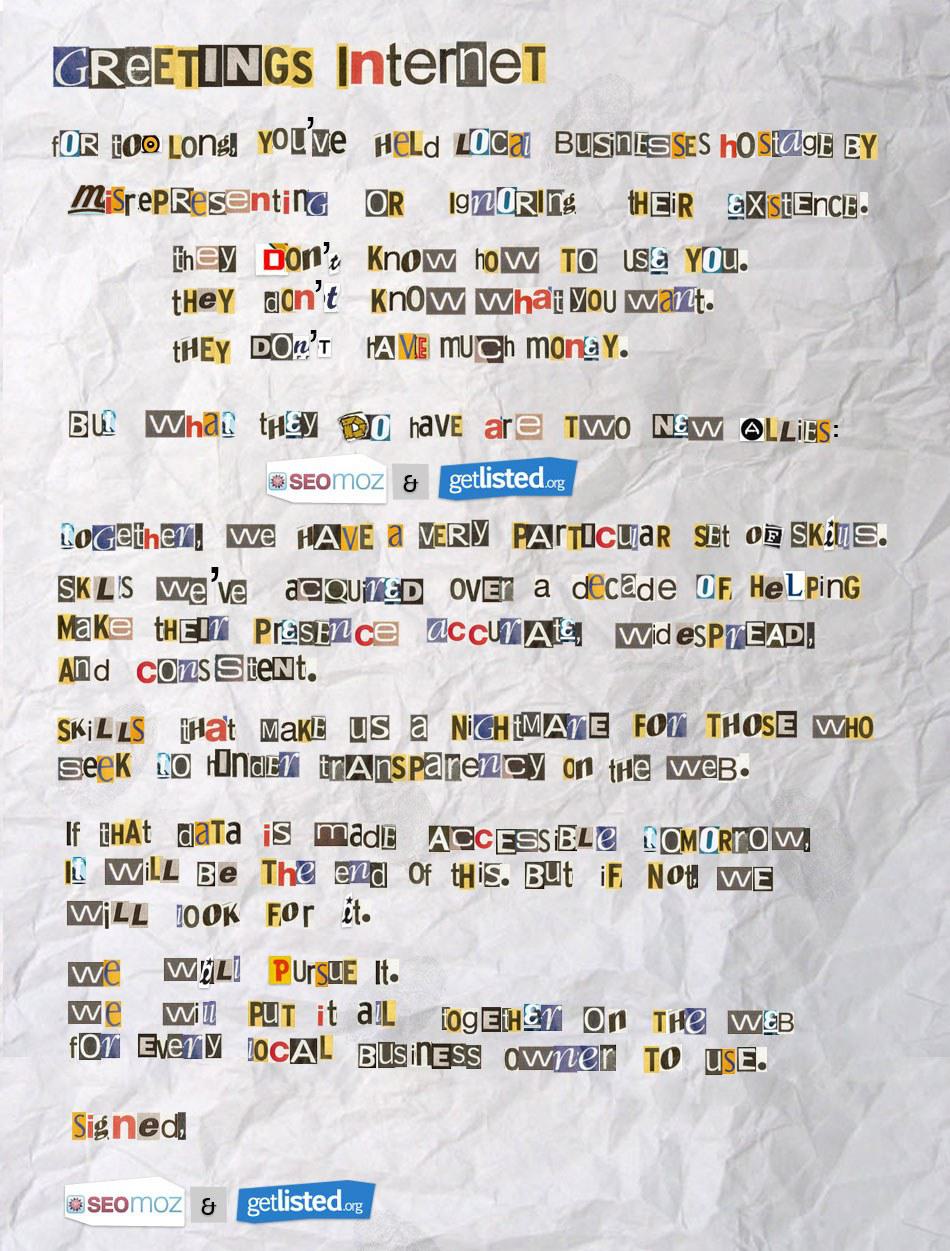 GREETINGS INTERNET
FOR TOO LONG, YOU'VE HELD LOCAL BUSINESSES HOSTAGE BY
MISREPRESENTING OR IGNORING THEIR EXISTENCE.
THEY DON'T KNOW HOW TO USE YOU.
THEY DON'T KNOW WHAT YOU WANT.
THEY DON'T HAVE MUCH MONEY.
BUT WHAT THEY DO HAVE ARE TWO NEW ALLIES:
SEOmoz & getlisted.org
TOGETHER, WE HAVE A VERY PARTICULAR SET OF SKILLS.
SKLLS WE'VE ACQUIRED OVER A DECADE OF HELPING
MAKE THEIR PRESENCE ACCURATE, WIDESPREAD,
AND CONSISTENT.
SKILLS THAT MAKE US A NIGHTMARE FOR THOSE WHO
SEEK TO HINDER TRANSPARENCY ON THE WEB.
IF THAT DATA IS MADE ACCESSIBLE TOMORROW,
IT WILL BE THE END OF THIS. BUT IF NOT, WE
WILL LOOK FOR IT.
WE WILL PURSUE IT.
WE WILL PUT IT ALL TOGETHER ON THE WEB
FOR EVERY LOCAL BUSINESS OWNER TO USE.
SIGNED,
SEOmoz & getlisted.org